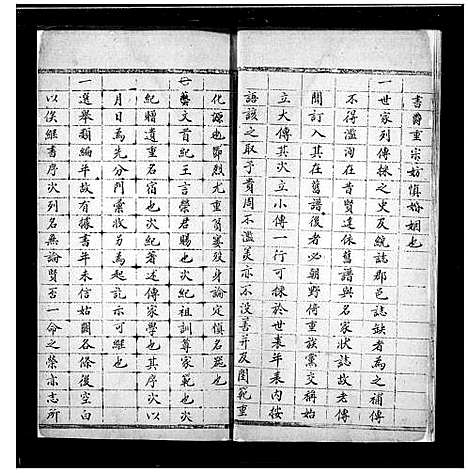 書爵重宗妨慎婚姻也
一世家列傳採之史及統誌郡邑誌缺者為之補傳
不得濫洵在昔賢達係舊譜與名家狀誌故老傳
聞訂入其在舊譜後者必朝野倚重族黨交稱始
立大傳其次立小傳一行可採於世表年表內按
語該之取予貴周不濫美亦不沒善并及閨範重
化源也鄭烈尤重貧嫠歿身論定慎名器也
一藝文首紀王言榮君賜也次紀祖訓尊家範也次
紀贈遺重名宿也次紀著述傳家學也其序次以
月日為先分門彙狀另為起訖示可繼也
一選舉類編年故有據書年未信姑闕各條後空白
以俟繼書序次列名無論賢否一命之榮亦志所